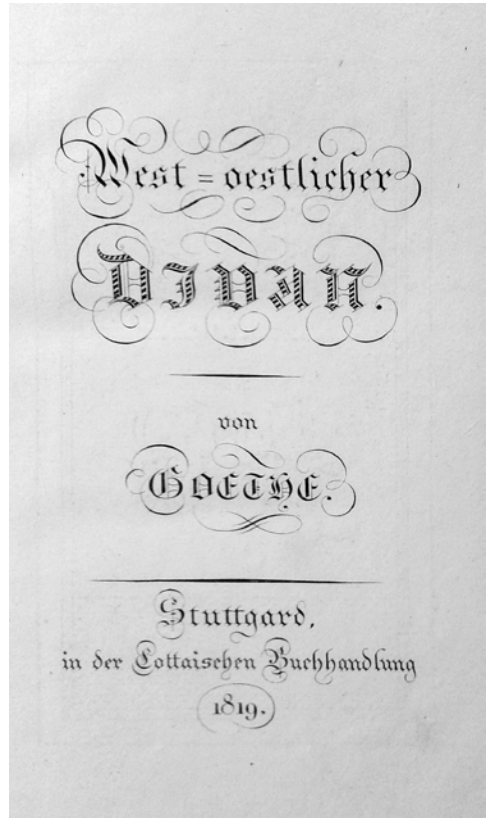 West=oestlicher
DIVAN.
von
GOETHE.
Stuttgard,
in der Cottaischen Buchhandlung
1819.